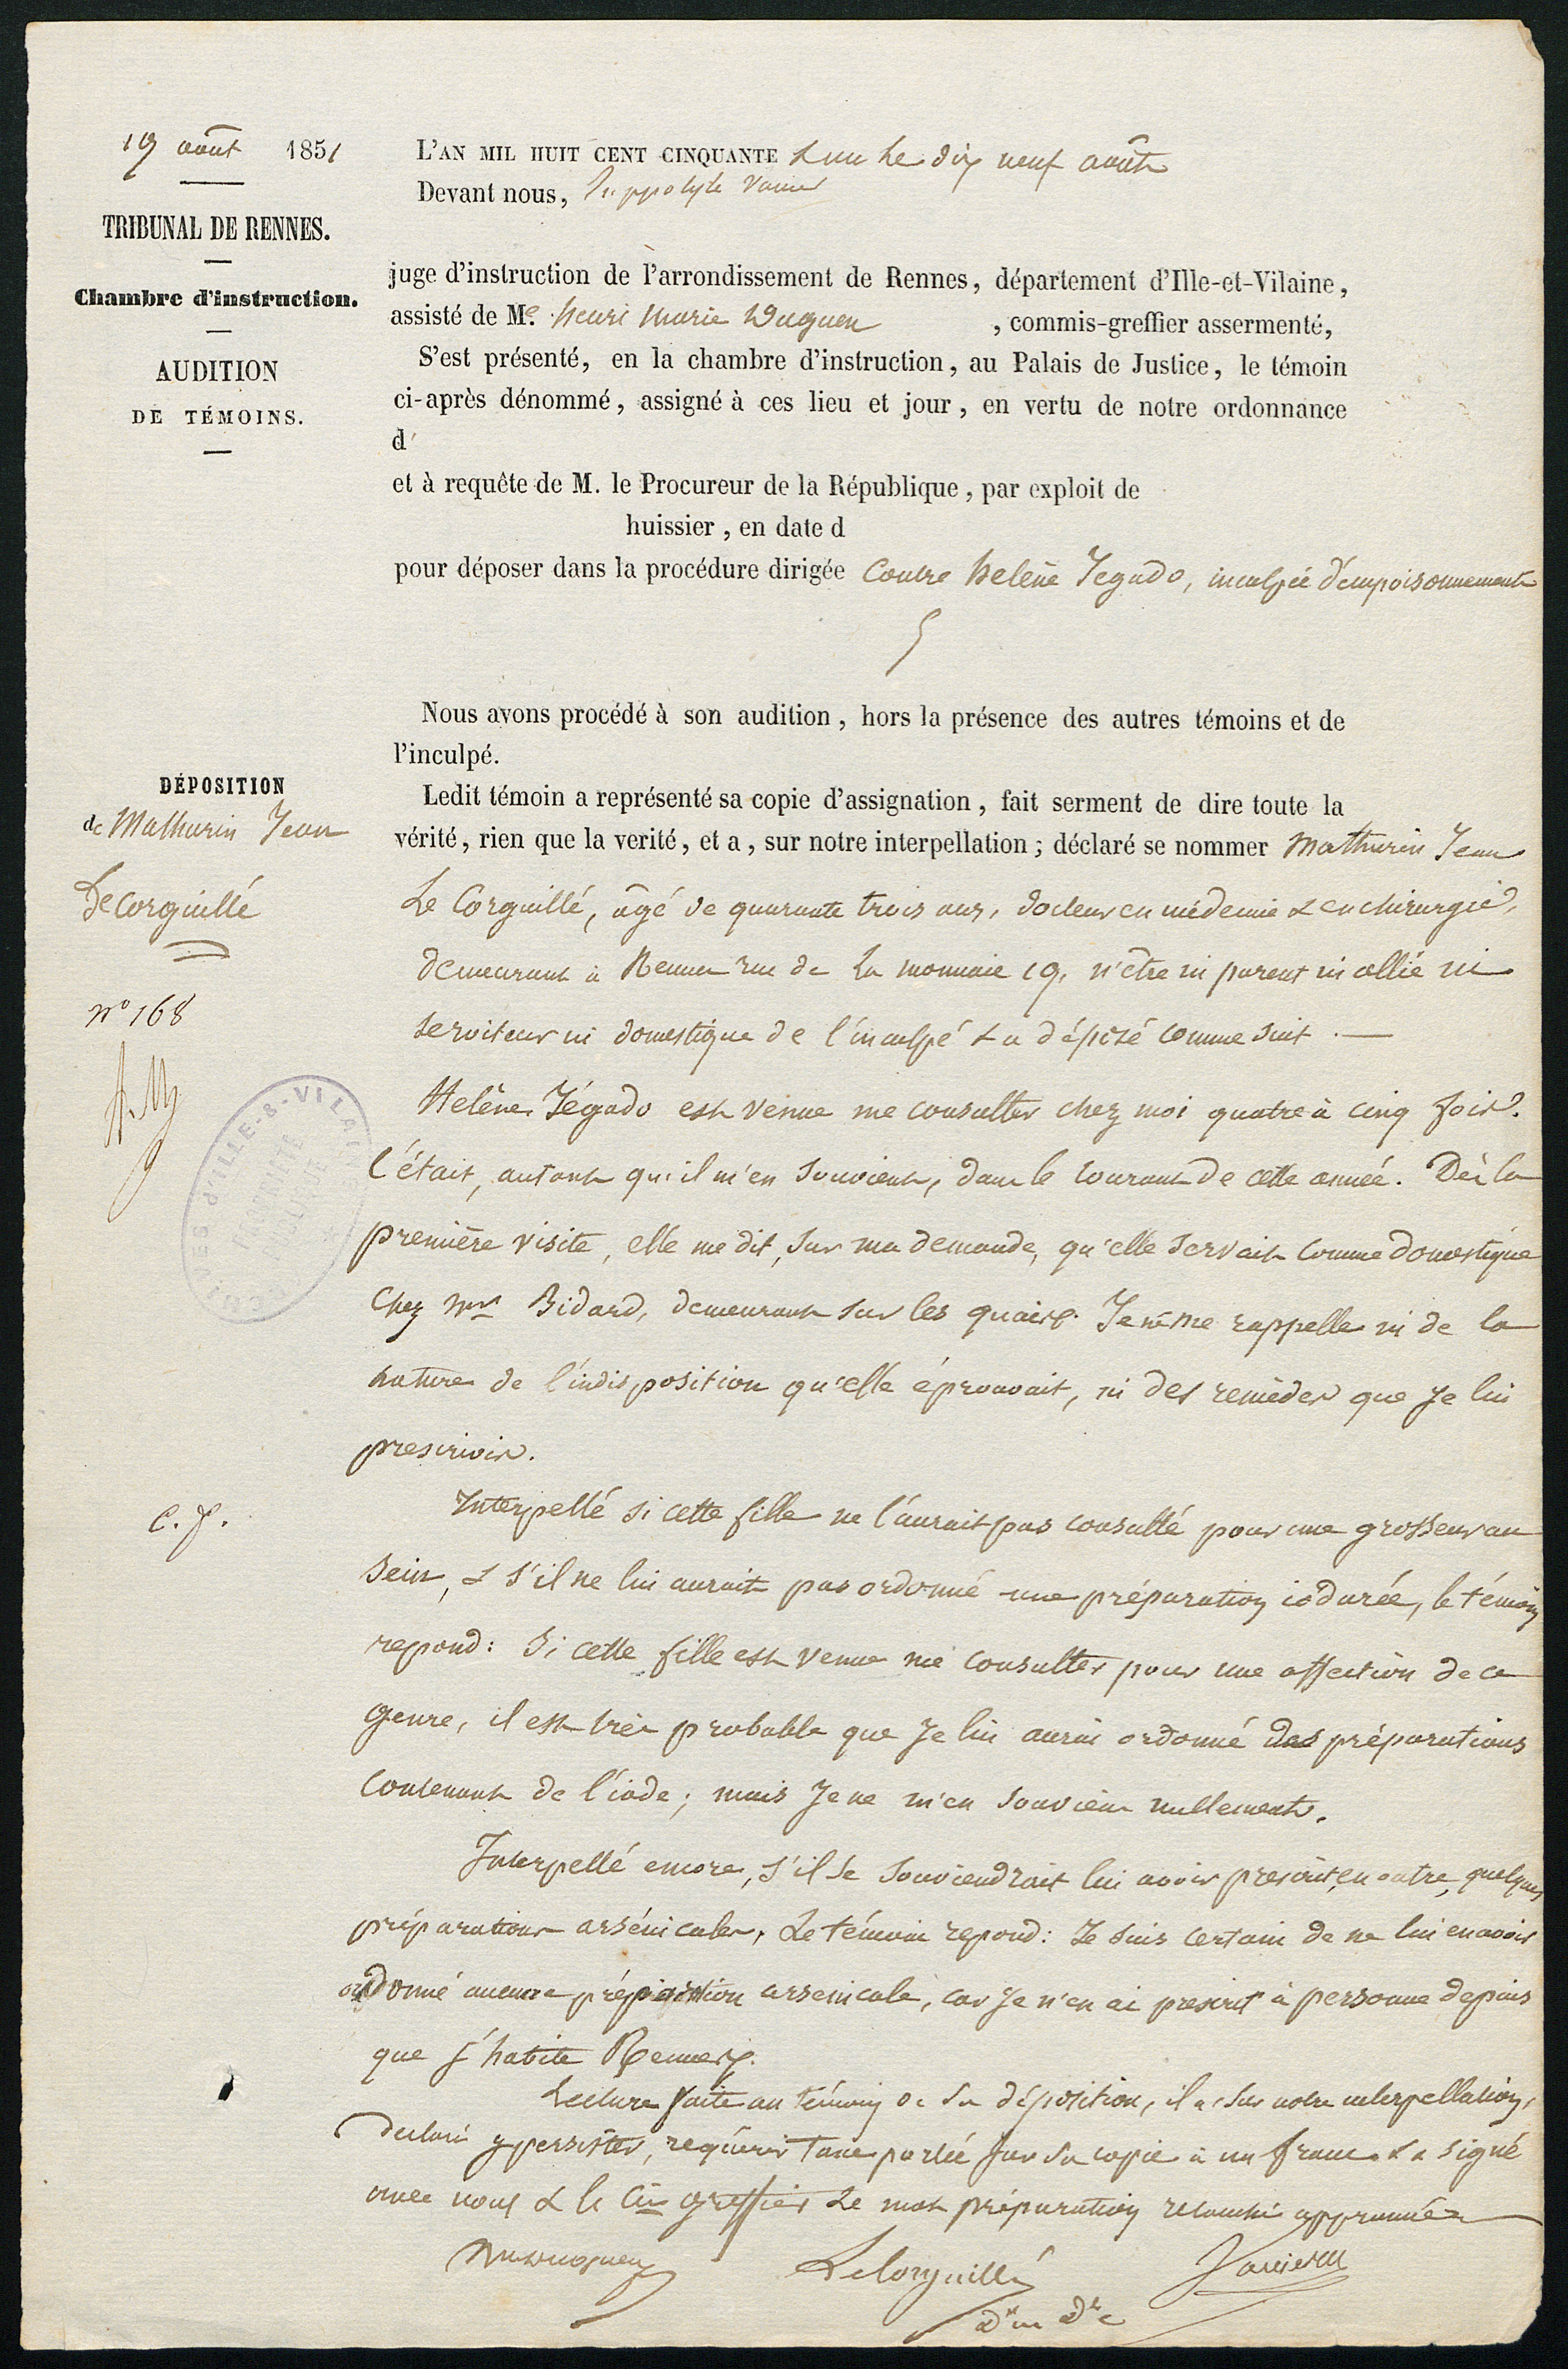 19 août 1851
TRIBUNAL DE RENNES.
Chambre d'instruction.
AUDITION
DE TÉMOINS.
L'AN MIL HUIT CENT CINQUANTE & un Le dix neuf août
Devant nous, hippolyte Vanier
juge d'instruction de l'arrondissement de Rennes, département d'Ille-et-Vilaine,
assisté de Me. henri marie , commis-greffier assermenté,
S'est présenté, en la chambre d'instruction, au Palais de Justice, le témoin
ci-après dénommé, assigné à ces lieu et jour, en vertu de notre ordonnance
d
et à requête de M. le Procureur de la République, par exploit de
huissier, en date d
pour déposer dans la procédure dirigée Contre helène Jegado, inculpée d'empoisonnement
Nous avons procédé à son audition, hors la présence des autres témoins et de
l'inculpé.
DÉPOSITION
de Mathurin Jean
Le Corguillé
n° 168
Ledit témoin a représenté sa copie d'assignation, fait serment de dire toute la
vérité, rien que la verité, et a, sur notre interpellation; déclaré se nommer Mathurin Jean
Le Corguillé, âgé de quarante trois ans, docteur en médecine & en chirurgie,
demeurant à Rennes rue de la monnaie 19, n'être ni parent ni allié ni
serviteur ni domestique de l'inculpé & a déposé comme suit. —
Helène Jégado est venue me consulter chez moi quatre à cinq fois.
C'était, autant qu'il m'en souvient, dans le courant de cette année. Dès la
première visite, elle me dit, sur ma demande, qu'elle servait comme domestique
Chez Mr Bidard, demeurant sur les quais. Je ne me rappelle ni de la
nature de l'indisposition qu'elle éprouvait, ni des remèdes que je lui
prescrivis.
C. J.
Interpellé si cette fille ne l'aurait pas consulté pour une grosseur au
sein, & s'il ne lui aurait pas ordonné une préparation iodurée, le témoin
repond: Si cette fille est venue me consulter pour une affection de ce
genre, il est très probable que je lui aurai ordonné des préparations
contenant de l'iode; mais je ne m'en souviens nullement.
Interpellé encore, s'il se souviendrait lui avoir prescrit, en outre, quelques
préparations arsénicales, Le témoin repond: Je suis certain de ne lui en avoir
ordonné aucune préparation arsenicale, car je n'en ai prescrit à personne depuis
que j'habite Rennes.
Lecture faite au témoin de sa déposition, il a, sur notre interpellation,
declaré y persister, requérir taxe portée sur sa copie à un franc & a signé
avec nous & le Cis greffier Le mot préparation retouché approuvé
LeCorguillé
Vanier
D.m
ARCHIVES d'ILLE-&-VILAINE